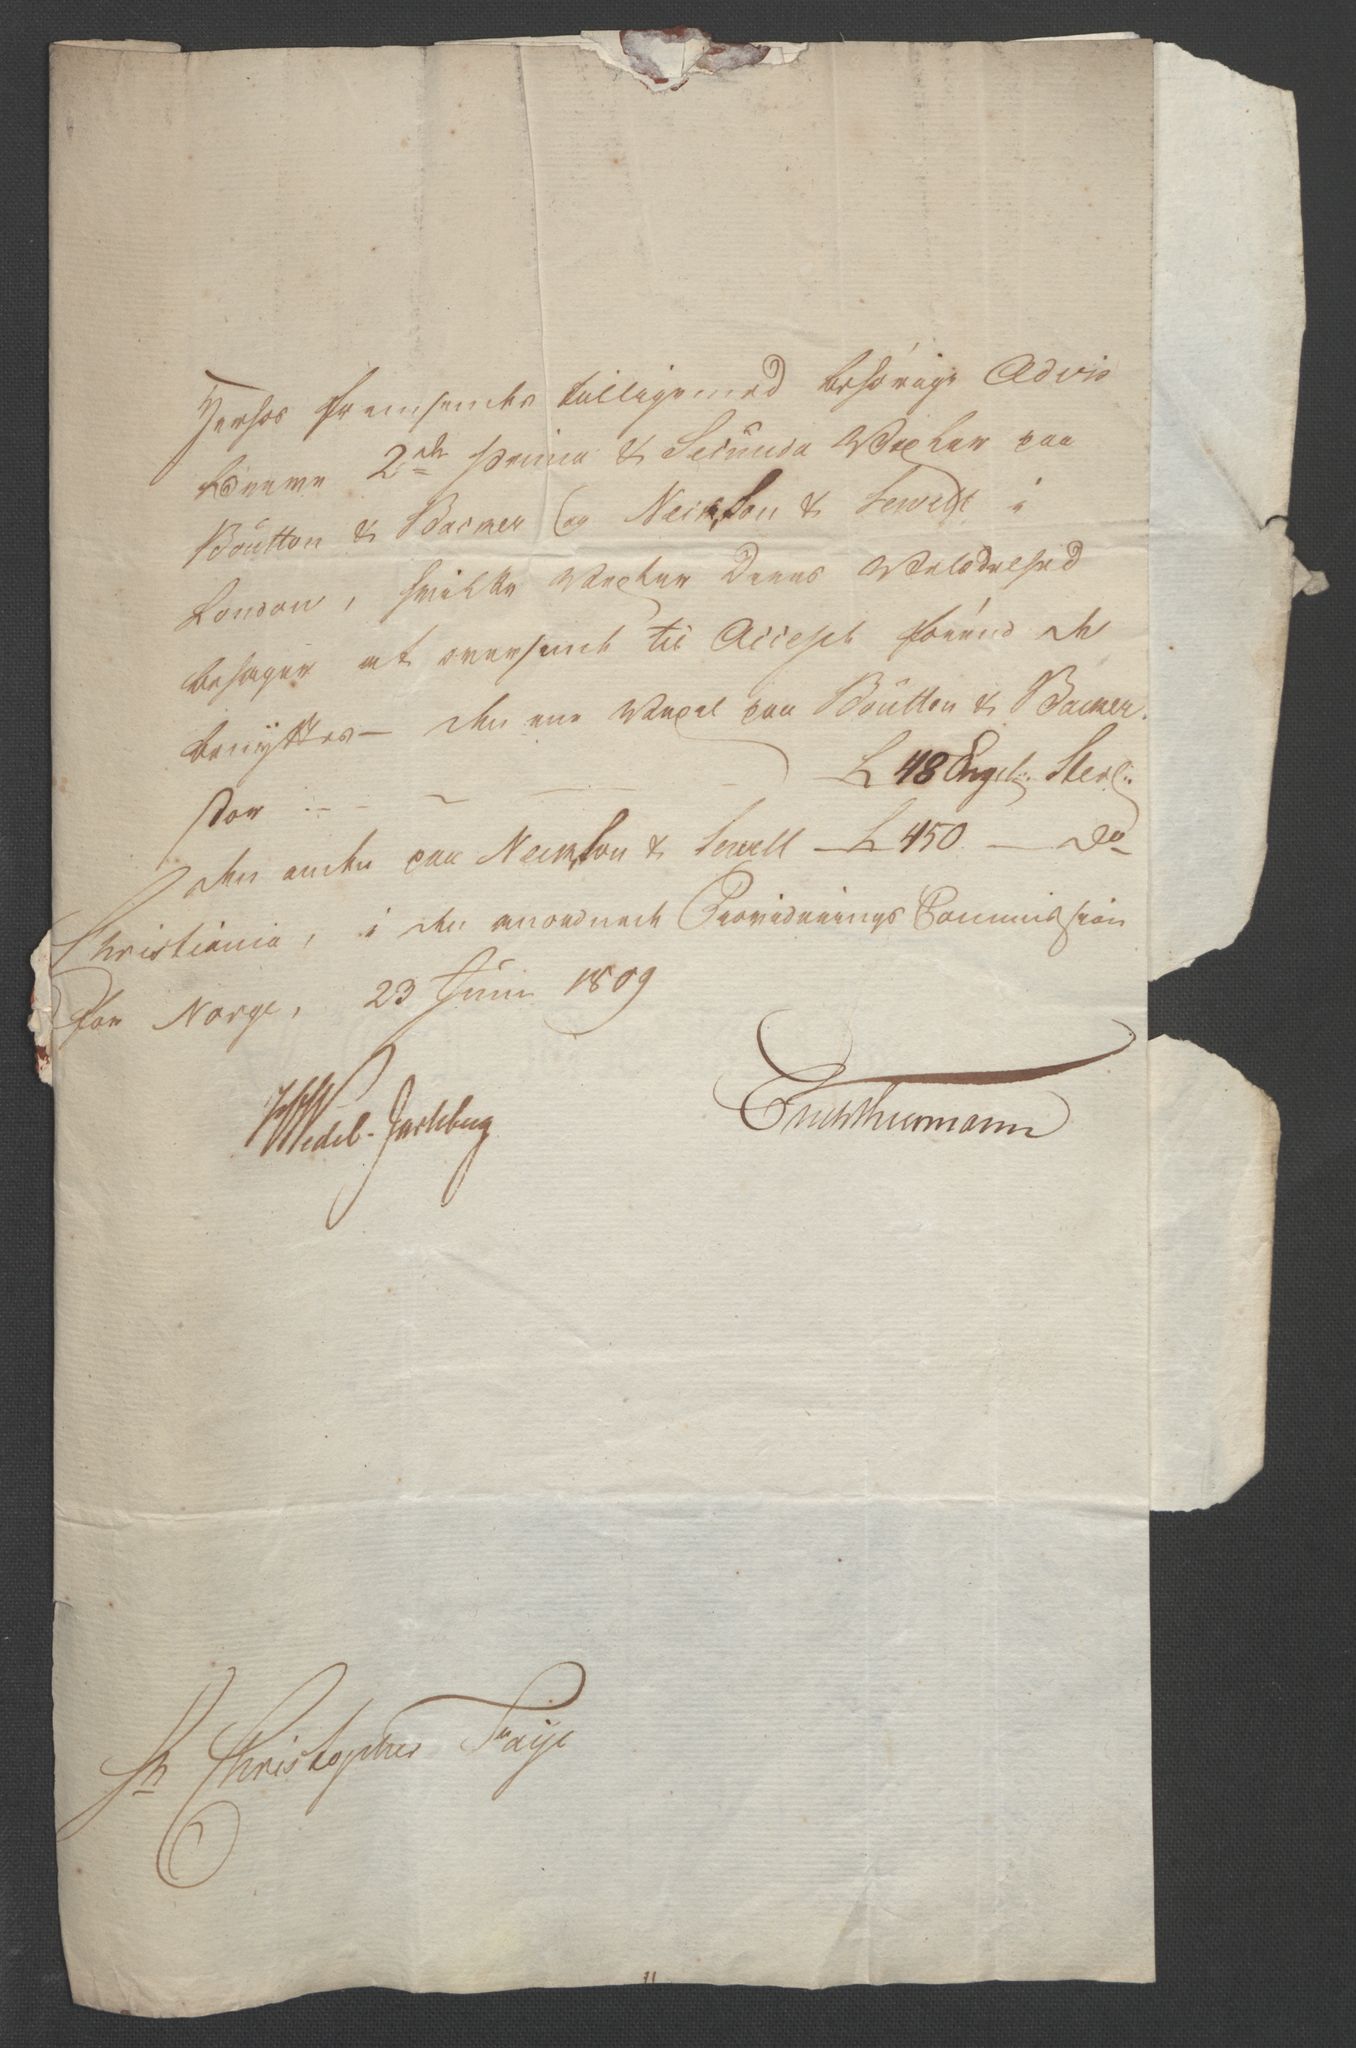 Herhos fremsendes tilligemed behörige Advis
breeve 2de Prima & Secunda Vexler paa
Boutton & Backer og Newton & Sewell i
London, hvilke Vexler Deres Velædelhed
behager at oversende til Accept forend de
benÿttes — den ene Vexel paa Boutton & Backer
stor — £ 48 Engel: Sterl:
den anden paa Newton & Sewell — £ 450 — Do
Christiania, i den anordnede Provideerings Commission
for Norge, 23 Juni 1809
HWedel-Jarlsberg
Thurmann
Hr Christopher Faÿe